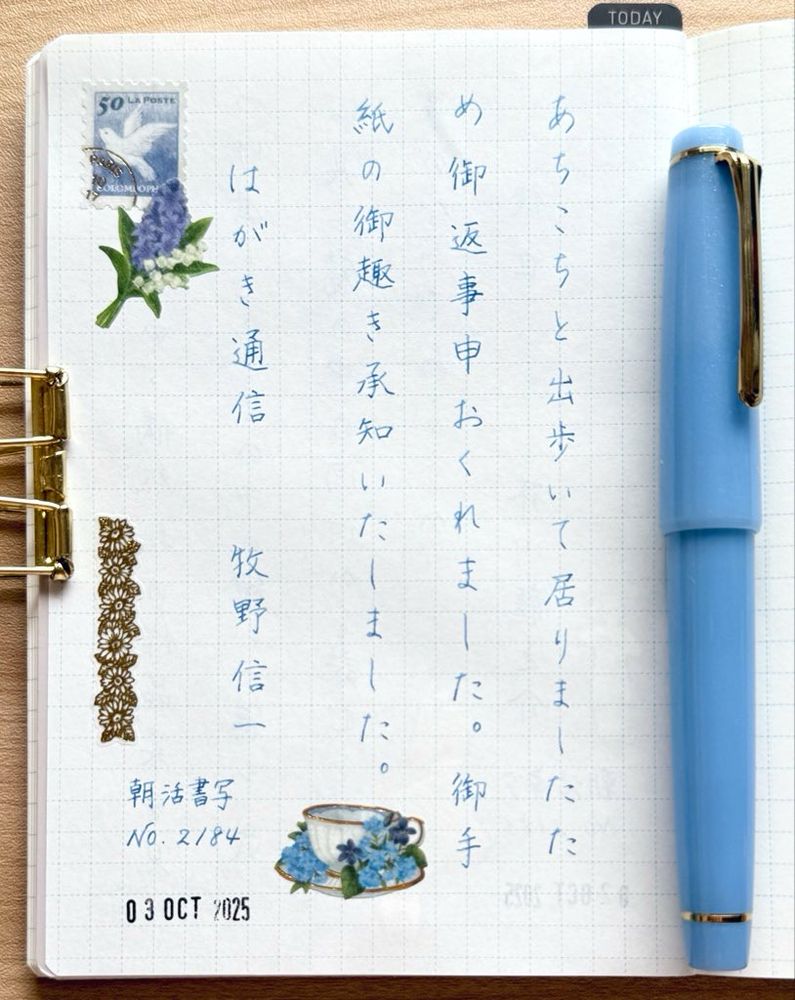 TODAY
あちこちと出歩いて居りましたた
め御返事申おくれました。御手
紙の御趣き承知いたしました。
はがき通信 牧野信一
50 LA POSTE
PARIS
COLOMBOPH
朝活書写
NO. 2184
03 OCT 2025